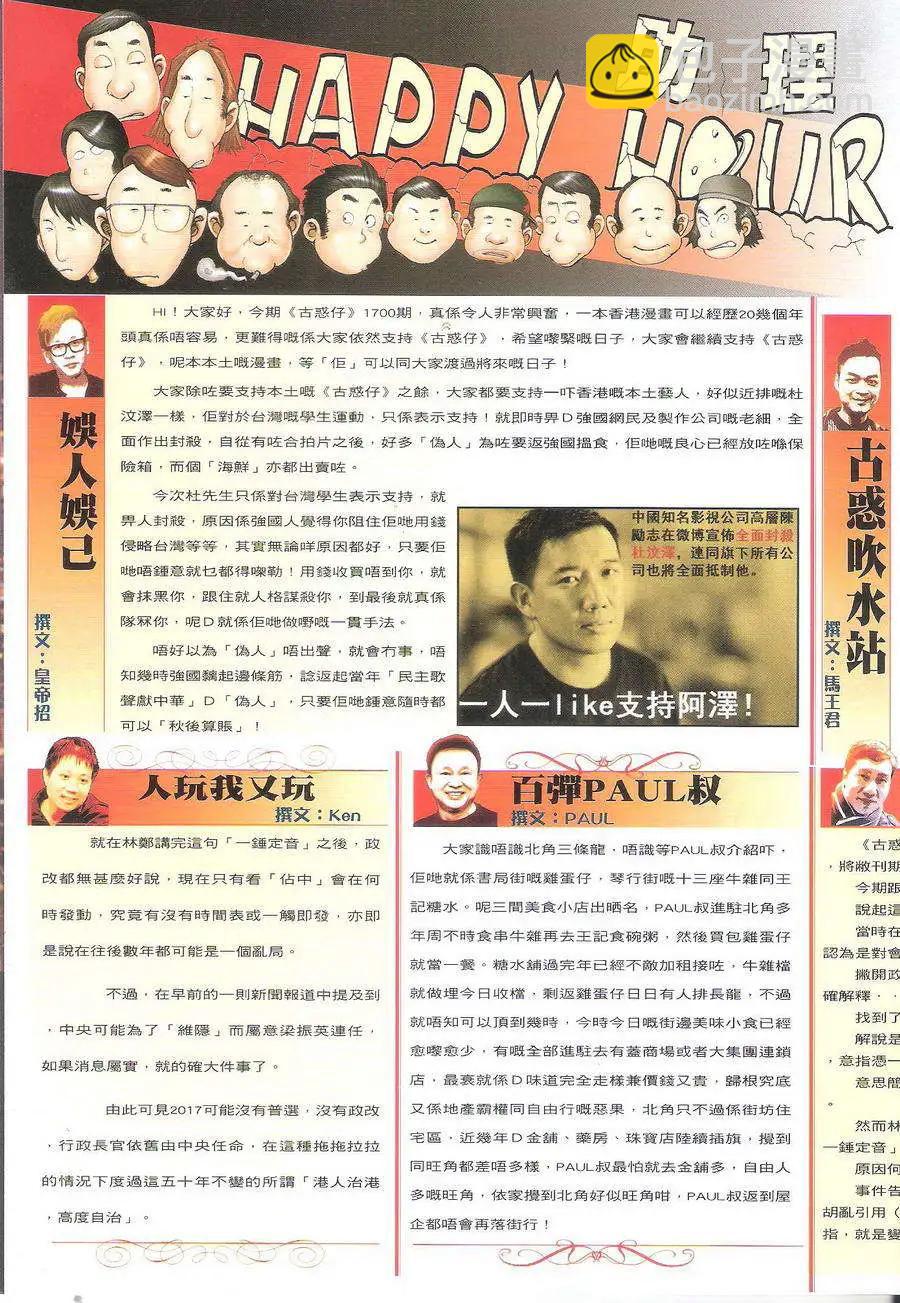 HAPPY 咖 理 HOUR
包子漫畫
baozimh.com
HI！大家好，今期《古惑仔》1700期，真係令人非常興奮，一本香港漫畫可以經歷20幾個年
頭真係唔容易，更難得嘅係大家依然支持《古惑仔》，希望嚟緊嘅日子，大家會繼續支持《古惑
仔》，呢本本土嘅漫畫，等「佢」可以同大家渡過將來嘅日子！
大家除咗要支持本土嘅《古惑仔》之餘，大家都要支持一吓香港嘅本土藝人，好似近排嘅杜
汶澤一樣，佢對於台灣嘅學生運動，只係表示支持！就即時畀D強國網民及製作公司嘅老細，全
面作出封殺，自從有咗合拍片之後，好多「偽人」為咗要返強國搵食，佢哋嘅良心已經放咗喺保
險箱，而個「海鮮」亦都出賣咗。
今次杜先生只係對台灣學生表示支持，就
畀人封殺，原因係強國人覺得你阻住佢哋用錢
侵略台灣等等，其實無論咩原因都好，只要佢
哋唔鍾意就乜都得㗎勒！用錢收買唔到你，就
會抹黑你，跟住就人格謀殺你，到最後就真係
隊冧你，呢D就係佢哋做嘢嘅一貫手法。
唔好以為「偽人」唔出聲，就會冇事，唔
知幾時強國黐起邊條筋，諗返起當年「民主歌
聲獻中華」D「偽人」，只要佢哋鍾意隨時都
可以「秋後算賬」！
娛人娛己
撰文：皇帝招
中國知名影視公司高層陳
勵志在微博宣佈全面封殺
杜汶澤，連同旗下所有公
司也將全面抵制他。
一人一like支持阿澤！
古惑吹水站
撰文：馬王君
人玩我又玩
撰文：Ken
就在林鄭講完這句「一錘定音」之後，政
改都無甚麼好說，現在只有看「佔中」會在何
時發動，究竟有沒有時間表或一觸即發，亦即
是說在往後數年都可能是一個亂局。
不過，在早前的一則新聞報道中提及到
，中央可能為了「維隱」而屬意梁振英連任，
如果消息屬實，就的確大件事了。
由此可見2017可能沒有普選，沒有政改
，行政長官依舊由中央任命，在這種拖拖拉拉
的情況下度過這五十年不變的所謂「港人治港
，高度自治」。
百彈PAUL叔
撰文：PAUL
大家識唔識北角三條龍，唔識等PAUL叔介紹吓，
佢哋就係書局街嘅雞蛋仔，琴行街嘅十三座牛雜同王
記糖水。呢三間美食小店出晒名，PAUL叔進駐北角多
年周不時食串牛雜再去王記食碗粥，然後買包雞蛋仔
就當一餐。糖水舖過完年已經不敵加租接咗，牛雜檔
就做埋今日收檔，剩返雞蛋仔日日有人排長龍，不過
就唔知可以頂到幾時，今時今日嘅街邊美味小食已經
愈嚟愈少，有嘅全部進駐去有蓋商場或者大集團連鎖
店，最衰就係D味道完全走樣兼價錢又貴，歸根究底
又係地產霸權同自由行嘅惡果，北角只不過係街坊住
宅區，近幾年D金舖、藥房、珠寶店陸續插旗，攪到
同旺角都差唔多樣，PAUL叔最怕就去金舖多，自由人
多嘅旺角，依家攪到北角好似旺角咁，PAUL叔返到屋
企都唔會再落街行！
《古惑
，將敝刊期
今期跟
說起這
當時在
認為是對會
撇開政
確解釋．．
找到了
解說是
，意指憑一
意思簡
。
然而林
一錘定音」
原因何
事件告
胡亂引用（
指，就是變